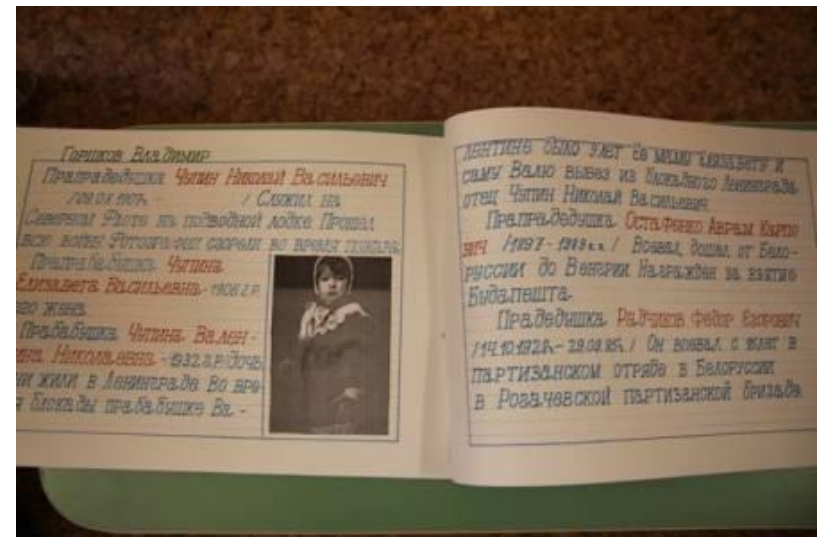 Горшков Владимир
Прапрадедушка Чупин Николай Васильевич
/09.01.1907г - / Служил на
Северном Флоте на подводной лодке. Прошел
всю войну. Фотографии сгорели во время пожара.
Прапрабабушка Чупина
Елизавета Васильевна - 1906 г.р.
его жена
Прабабушка Чупина Вален-
тина Николаевна - 1932 г.р. /дочь/
они жили в Ленинграде. Во вре-
я блокады прабабушке Ва-
лентине было лет. Ее маму Елизавету и
саму Валю вывез из блокадного Ленинграда
отец Чупин Николай Васильевич.
Прапрадедушка Остафенко Аврам Карпо
вич / - г.г. / Воевал, дошел от Бело-
руссии до Венгрии. Награжден за взятие
Будапешта.
Прадедушка Радчиков Федор Егорович
/14.10.192 - / Он воевал с лет в
партизанском отряде в Белоруссии
в Рогачевской партизанской бригаде